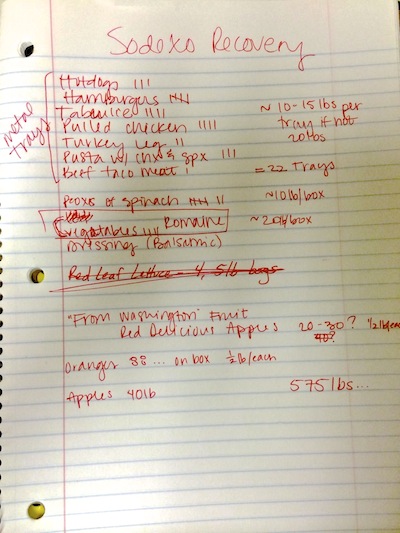 Sodexo Recovery
metal Trays
Hotdogs ||||
Hamburgers ||||
Tabouleh ||||
~ 10-15 lbs per
Pulled chicken ||||
tray if not
Turkey leg ||
20 lbs
Pasta w/ chx & spx |||
Beef taco meat |
= 22 Trays
Boxes of spinach |||| ||
~10 lb/box
Vegetables ||| Romaine
~ 20 lb/box
Dressing (Balsamic)
Red Leaf Lettuce - 4, 5 lb bags
"From Washington" Fruit
Red Delicious Apples 20-30? 1/2 lb/each
40?
Oranges 88 ... on box 1/2 lb/each
Apples 40 lb
575 lbs...